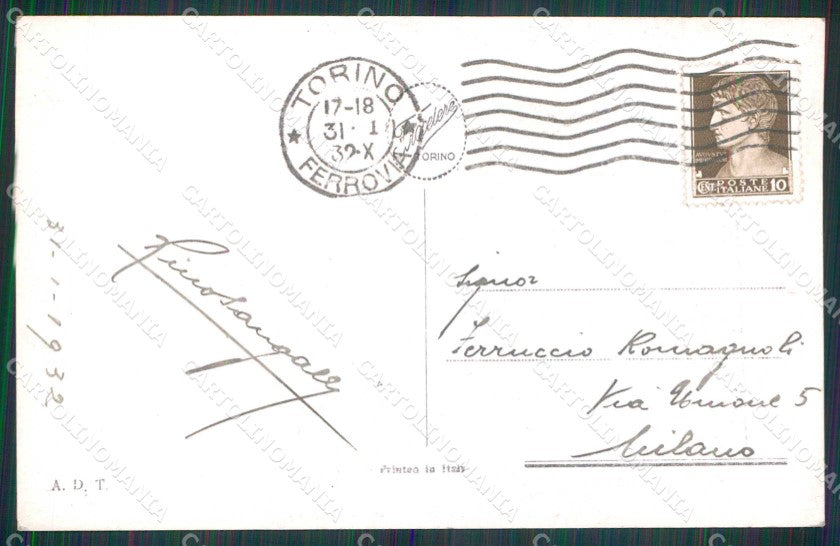 TORINO
17-18
31·1
32·X
FERROVIA
TORINO
AVGVSTVS
POSTE
CENT ITALIANE 10
31-1-1932
Signor
Ferruccio Romagnoli
Via Unione 5
Milano
Printed in Italy
A. D. T.
CARTOLINOMANIA